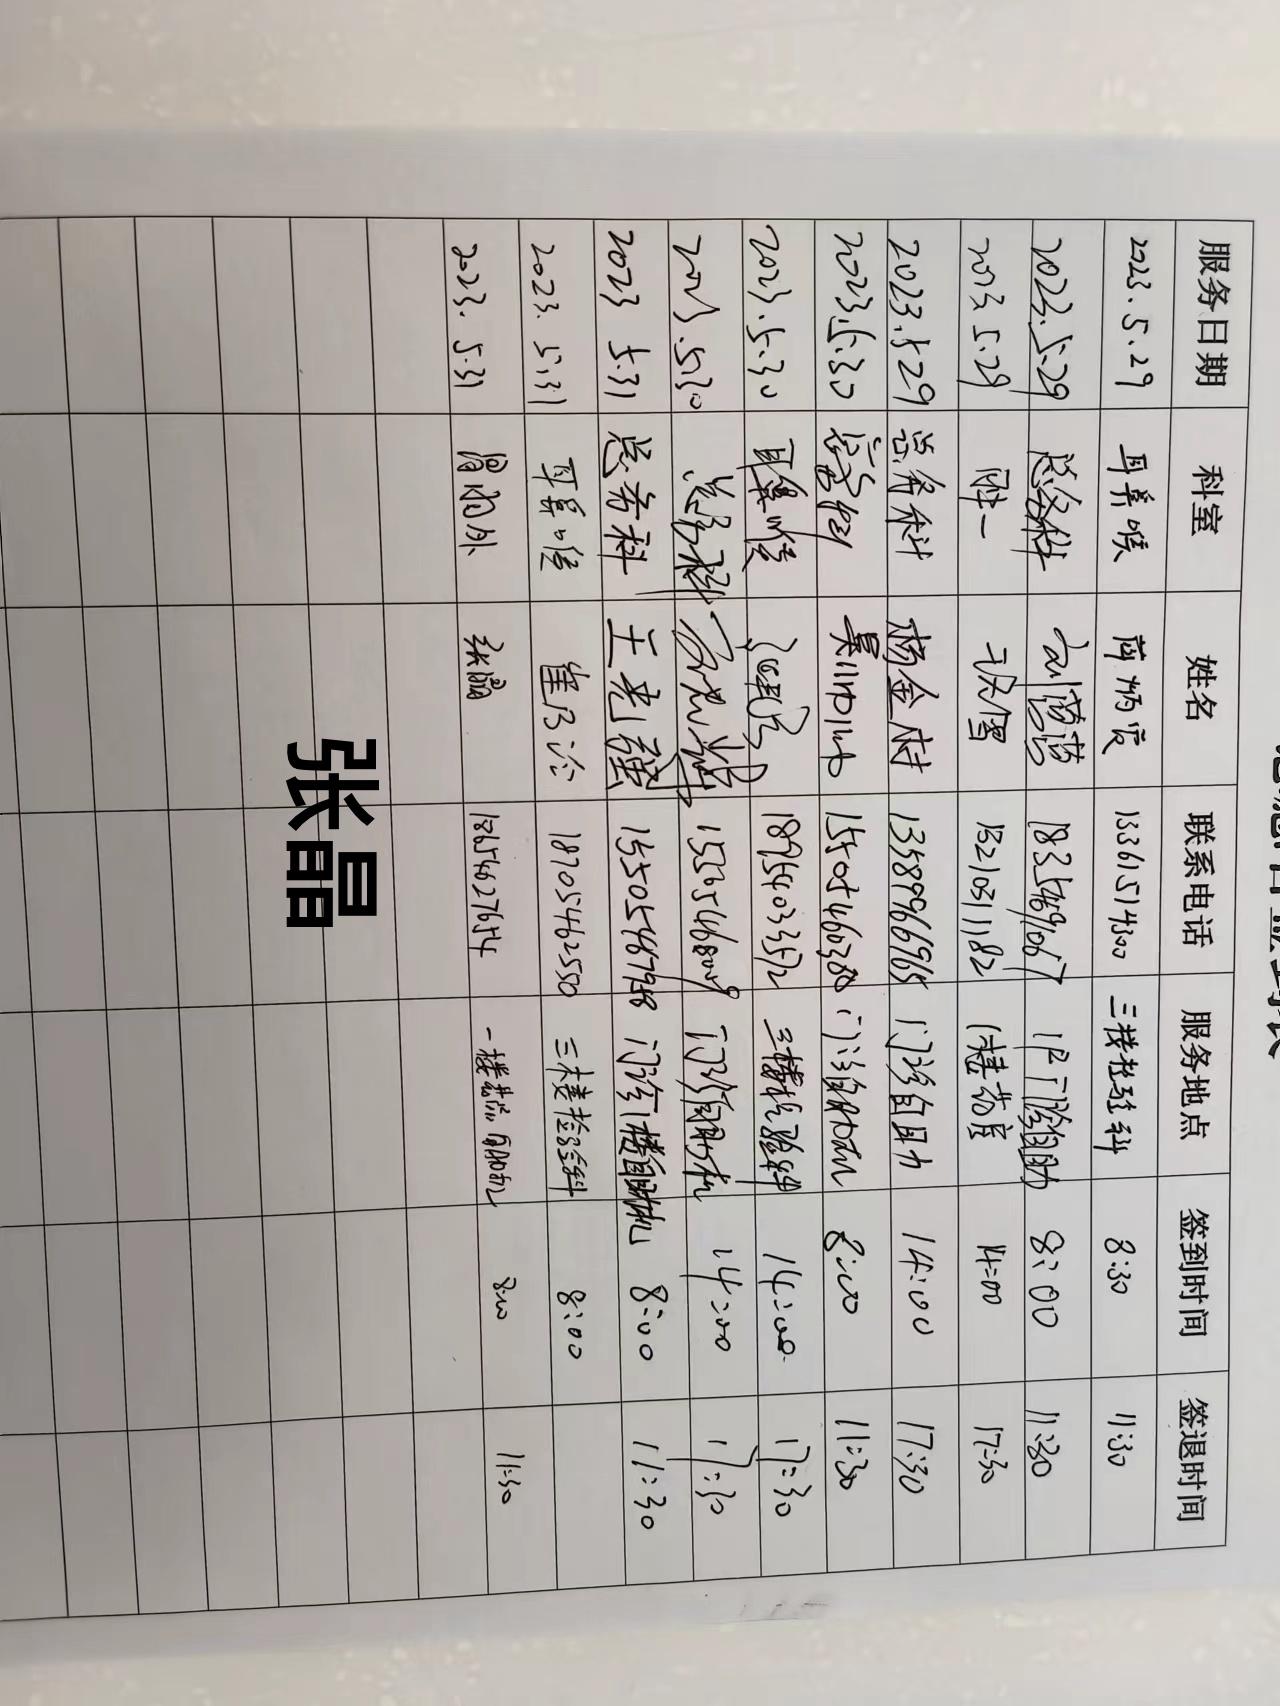 服务日期 科室 姓名 联系电话 服务地点 签到时间 签退时间
2023.5.29 耳鼻喉 13361514300 三楼检验科 8:30 11:30
2023.5.29 总务科 18354869067 门诊自助 8:00 11:30
2023.5.29 附一 13210311182 1楼药房 14:00 17:30
2023.5.29 总务科 杨金村 13589966965 门诊自助 14:00 17:30
2023.5.30 15505460380 门诊自助机 8:00 11:30
2023.5.30 耳鼻咽喉 18954033572 三楼检验科 14:00 17:30
2023.5.30 总务科 门诊自助机 14:00 17:30
2023 5.31 总务科 王光强 15505467958 门诊1楼自助机 8:00 11:30
2023.5.31 耳鼻咽喉 18705462550 三楼检验科 8:00
2023.5.31 胃肠外 张晶 18654627654 一楼药房自助机 8:00 11:30
张晶